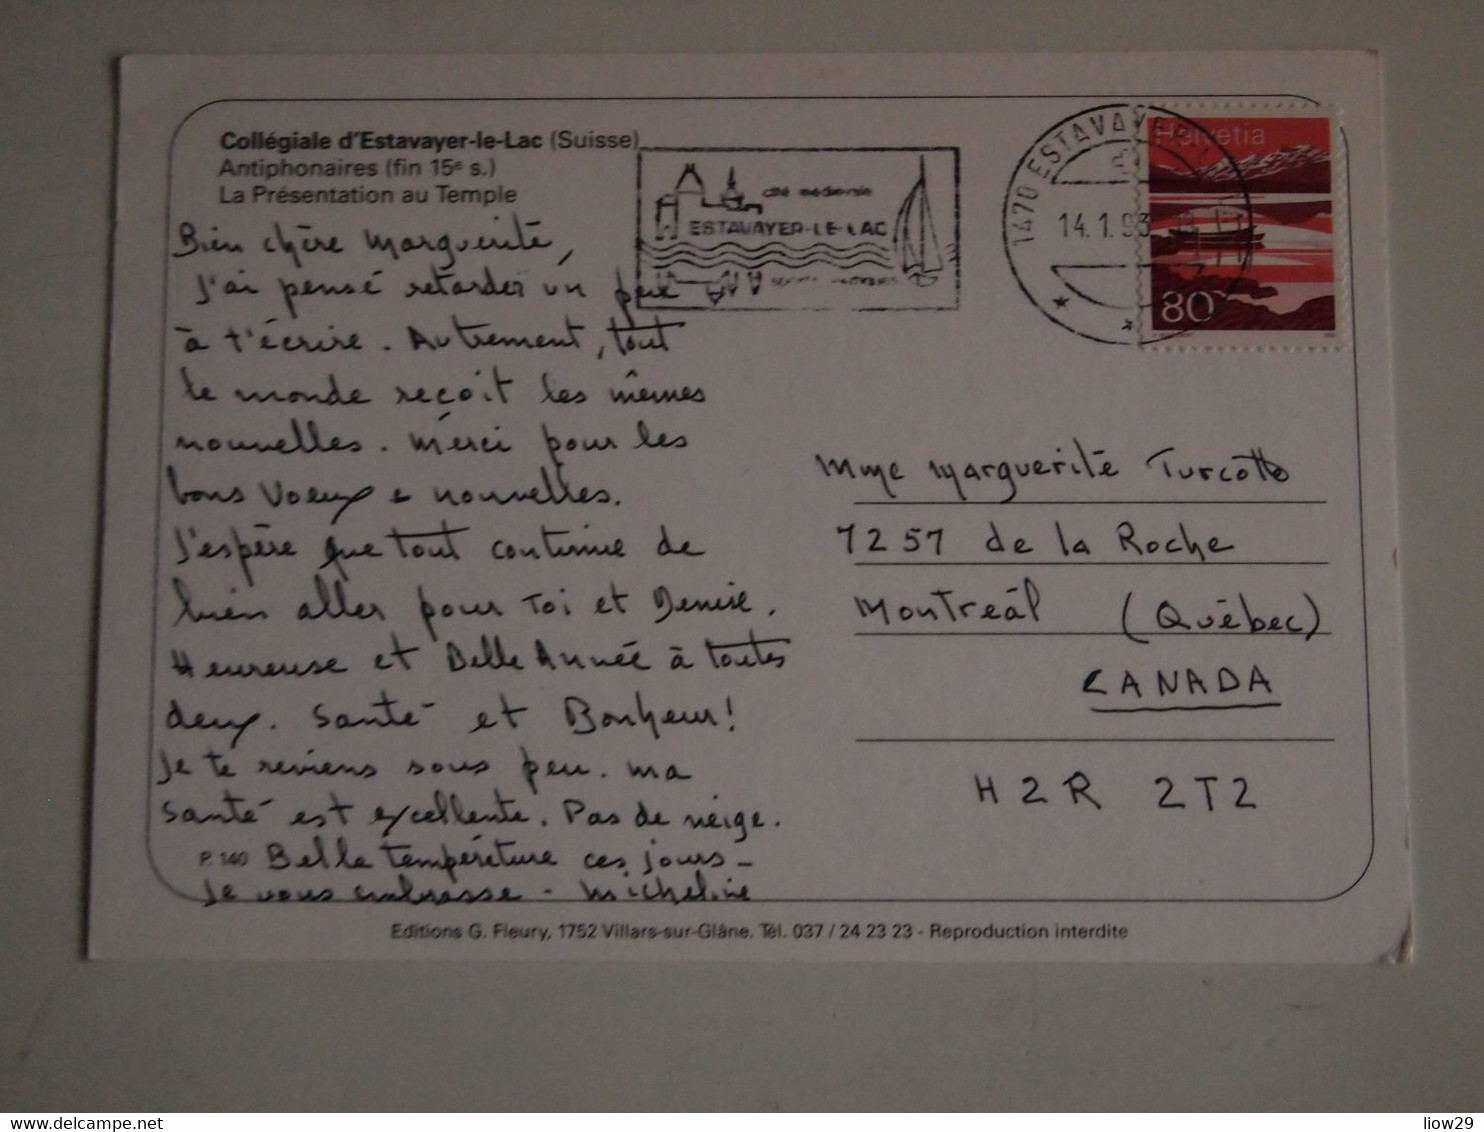 Collégiale d'Estavayer-le-Lac (Suisse)
Antiphonaires (fin 15e s.)
La Présentation au Temple
Bien chère Marguerite,
J'ai pensé retarder un peu
à t'écrire. Autrement, tout
le monde reçoit les mêmes
nouvelles. Merci pour les
bons Voeux & nouvelles.
J'espère que tout continue de
bien aller pour Toi et Denise.
Heureuse et Belle Année à toutes
deux. Santé et Bonheur!
Je te reviens sous peu. Ma
santé est excellente. Pas de neige.
P. 140 Belle température ces jours -
Je vous embrasse - Micheline
cité médiévale
ESTAVAYER-LE-LAC
1470 ESTAVAYER
14.1.93
Helvetia
80
Mme Marguerite Turcotte
7257 de la Roche
Montréal (Québec)
CANADA
H2R 2T2
Editions G. Fleury, 1752 Villars-sur-Glâne. Tél. 037 / 24 23 23 - Reproduction interdite
delcampe.net
liow29